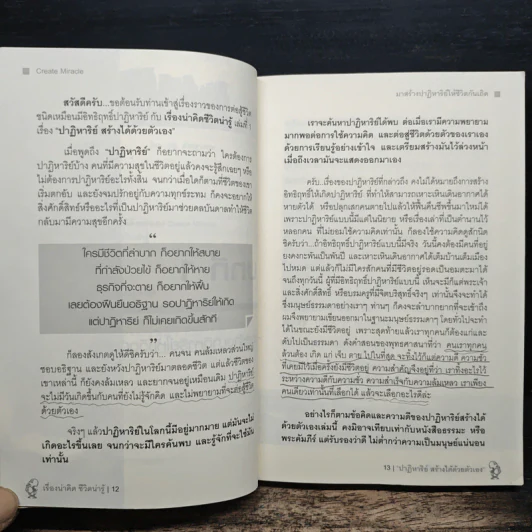 Create Miracle
สวัสดีครับ...ขอต้อนรับท่านเข้าสู่เรื่องราวของการต่อสู้ชีวิต
ชนิดเหมือนมีอิทธิฤทธิ์ปาฏิหาริย์ กับ เรื่องน่าคิดชีวิตน่ารู้ เล่มที่ 1
เรื่อง "ปาฏิหาริย์ สร้างได้ด้วยตัวเอง"
เมื่อพูดถึง "ปาฏิหาริย์" ก็อยากจะถามว่า ใครต้องการ
ปาฏิหาริย์บ้าง คนที่มีความสุขในชีวิตอยู่แล้วคงจะรู้สึกเฉยๆ หรือ
ไม่ต้องการปาฏิหาริย์อะไรทั้งสิ้น จนกว่าเมื่อใดก็ตามที่ชีวิตของเขา
เริ่มตกอับ และยังจมปรักอยู่กับความทุกข์ระทม ก็คงจะอยากให้
สิ่งศักดิ์สิทธิ์หรืออะไรที่เป็นปาฏิหาริย์มาช่วยดลบันดาลทำให้ชีวิต
กลับมามีความสุขอีกครั้ง
“
ใครมีชีวิตที่ลำบาก ก็อยากให้สบาย
ที่กำลังป่วยไข้ ก็อยากให้หาย
ธุรกิจที่จะตาย ก็อยากให้ฟื้น
เลยต้องฝืนยืนอธิฐาน รอปาฏิหาริย์ให้เกิด
แต่ปาฏิหาริย์ ก็ไม่เคยเกิดขึ้นสักที
”
ก็ลองสังเกตดูให้ดีซิครับว่า... คนจน คนล้มเหลวส่วนใหญ่
ชอบอธิฐาน และยังหวังปาฏิหาริย์มาตลอดชีวิต แต่แล้วชีวิตของ
เขาเหล่านี้ ก็ยังคงล้มเหลว และยากจนอยู่เหมือนเดิม ปาฏิหาริย์
จะไม่มีวันเกิดขึ้นกับคนที่ยังไม่รู้จักคิด และไม่พยายามที่จะต่อสู้ชีวิต
ด้วยตัวเอง
จริงๆ แล้วปาฏิหาริย์ในโลกนี้มีอยู่มากมาย แต่มันจะไม่
เกิดอะไรขึ้นเลย จนกว่าจะมีใครค้นพบ และรู้จักที่จะใช้มัน
เท่านั้น
เรื่องน่าคิด ชีวิตน่ารู้ | 12
มาสร้างปาฏิหาริย์ให้ชีวิตกันเถิด
เราจะค้นหาปาฏิหาริย์ได้พบ ต่อเมื่อเรามีความพยายาม
มากพอต่อการใช้ความคิด และต่อสู้ชีวิตด้วยตัวของเราเอง
ด้วยการเรียนรู้อย่างเข้าใจ และเตรียมสร้างมันไว้ล่วงหน้า
เมื่อถึงเวลามันจะแสดงออกมาเอง
ครับ...เรื่องของปาฏิหาริย์ที่กล่าวถึง คงไม่ได้หมายถึงการสร้าง
อิทธิฤทธิ์ให้เกิดปาฏิหาริย์ ที่ทำให้สามารถเหาะเหินเดินอากาศได้
หายตัวได้ หรือปลุกเสกคนตายไปแล้วให้ฟื้นคืนชีพขึ้นมาใหม่ได้
เพราะปาฏิหาริย์แบบนี้มีแต่ในนิยาย หรือเรื่องเล่าที่เป็นตำนานไว้
หลอกคน ที่ไม่ยอมใช้ความคิดเท่านั้น ก็ลองใช้ความคิดดูสักนิด
ซิครับว่า...ถ้าอิทธิฤทธิ์ปาฏิหาริย์แบบนี้มีจริง วันนี้คงต้องมีคนที่อยู่
ยงคงกะพันเป็นพันปี และเหาะเหินเดินอากาศได้เต็มบ้านเต็มเมือง
ไปหมด แต่แล้วก็ไม่มีใครสักคนที่มีชีวิตอยู่รอดเป็นอมตะมาได้
จนถึงทุกวันนี้ ผู้ที่มีอิทธิฤทธิ์ปาฏิหาริย์แบบนี้ เห็นจะมีก็แต่พระเจ้า
และสิ่งศักดิ์สิทธิ์ หรือบรมครูที่มีจิตบริสุทธิ์จริงๆ เท่านั้นจึงจะทำได้
ซึ่งมนุษย์ธรรมดาอย่างเราๆ ท่านๆ ก็คงจะลำบากยากที่จะเข้าถึง
ผมจึงพยายามเขียนออกมาในฐานะมนุษย์ธรรมดาๆ โดยทั่วไปจะทำ
ได้ในขณะยังมีชีวิตอยู่ เพราะสุดท้ายแล้วเราทุกคนก็ต้องแก่และ
ดับไปเป็นธรรมดา ดังคำสอนของพุทธศาสนาที่ว่า คนเราทุกคน
ล้วนต้อง เกิด แก่ เจ็บ ตาย ไปในที่สุด จะทิ้งไว้ก็แต่ความดี ความชั่ว
ที่เคยมีไว้เมื่อครั้งยังมีชีวิตอยู่ ความสำคัญจึงอยู่ที่ว่า เราทิ้งอะไรไว้
ระหว่างความดีกับความชั่ว ความสำเร็จกับความล้มเหลว เราเพียง
คนเดียวเท่านั้นที่เลือกได้ แล้วจะเลือกอะไรดีล่ะ
อย่างไรก็ตามข้อคิดและความดีของปาฏิหาริย์สร้างได้
ด้วยตัวเองเล่มนี้ คงมิอาจเทียบเท่ากับหนังสือธรรมะ หรือ
พระคัมภีร์ แต่รับรองว่าดี ไม่ต่ำกว่าความเป็นมนุษย์แน่นอน
13 | "ปาฏิหาริย์ สร้างได้ด้วยตัวเอง"